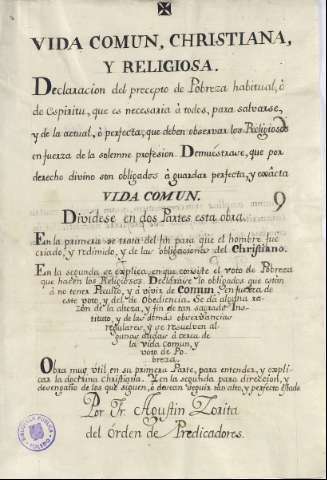 VIDA COMUN, CHRISTIANA,
Y RELIGIOSA.
Declaracion del precepto de Pobreza habitual, ò
de Espiritu, que es necesaria à todos, para salvarse,
y de la actual, ò perfecta, que deben observar los Religiosos
en fuerza de la solemne profesion. Demuéstrase, que por
derecho divino son obligados à guardar perfecta, y exâcta
VIDA COMUN.
Divídese en dos Partes esta obra.
En la primera se trata del fin para que el hombre fue
criado, y redimido, y de las obligaciones del Christiano.
En la segunda se explica, en que consiste el voto de Pobreza
que hacen los Religiosos. Declárase lo obligados que están
à no tener Peculio, y à vivir de Comun en fuerza de
este voto, y del de Obediencia. Se dà alguna ra-
zon de la alteza, y fin de tan sagrado Insti-
tuto, y de las demás observancias
regulares, y se resuelven al-
gunas dudas à cerca de
la Vida comun, y
voto de Po-
breza.
Obra muy útil en su primera Parte, para entender, y expli-
car la doctrina Christiana. Y en la segunda para direccion, y
desengaño de los que siguen, ò desean seguir tan alto, y perfecto Estado
Por Fr. Agustin Zorita
del Órden de Predicadores.